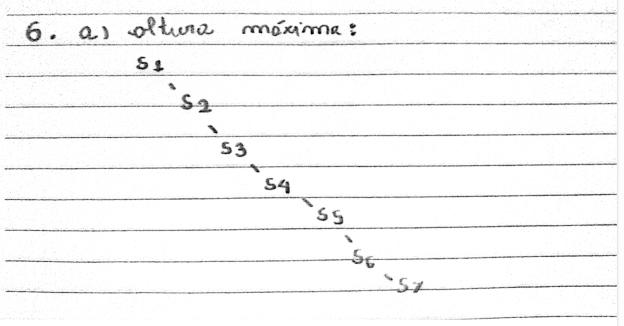 6. a) altura máxima:
S1
S2
S3
S4
S5
S6
S7